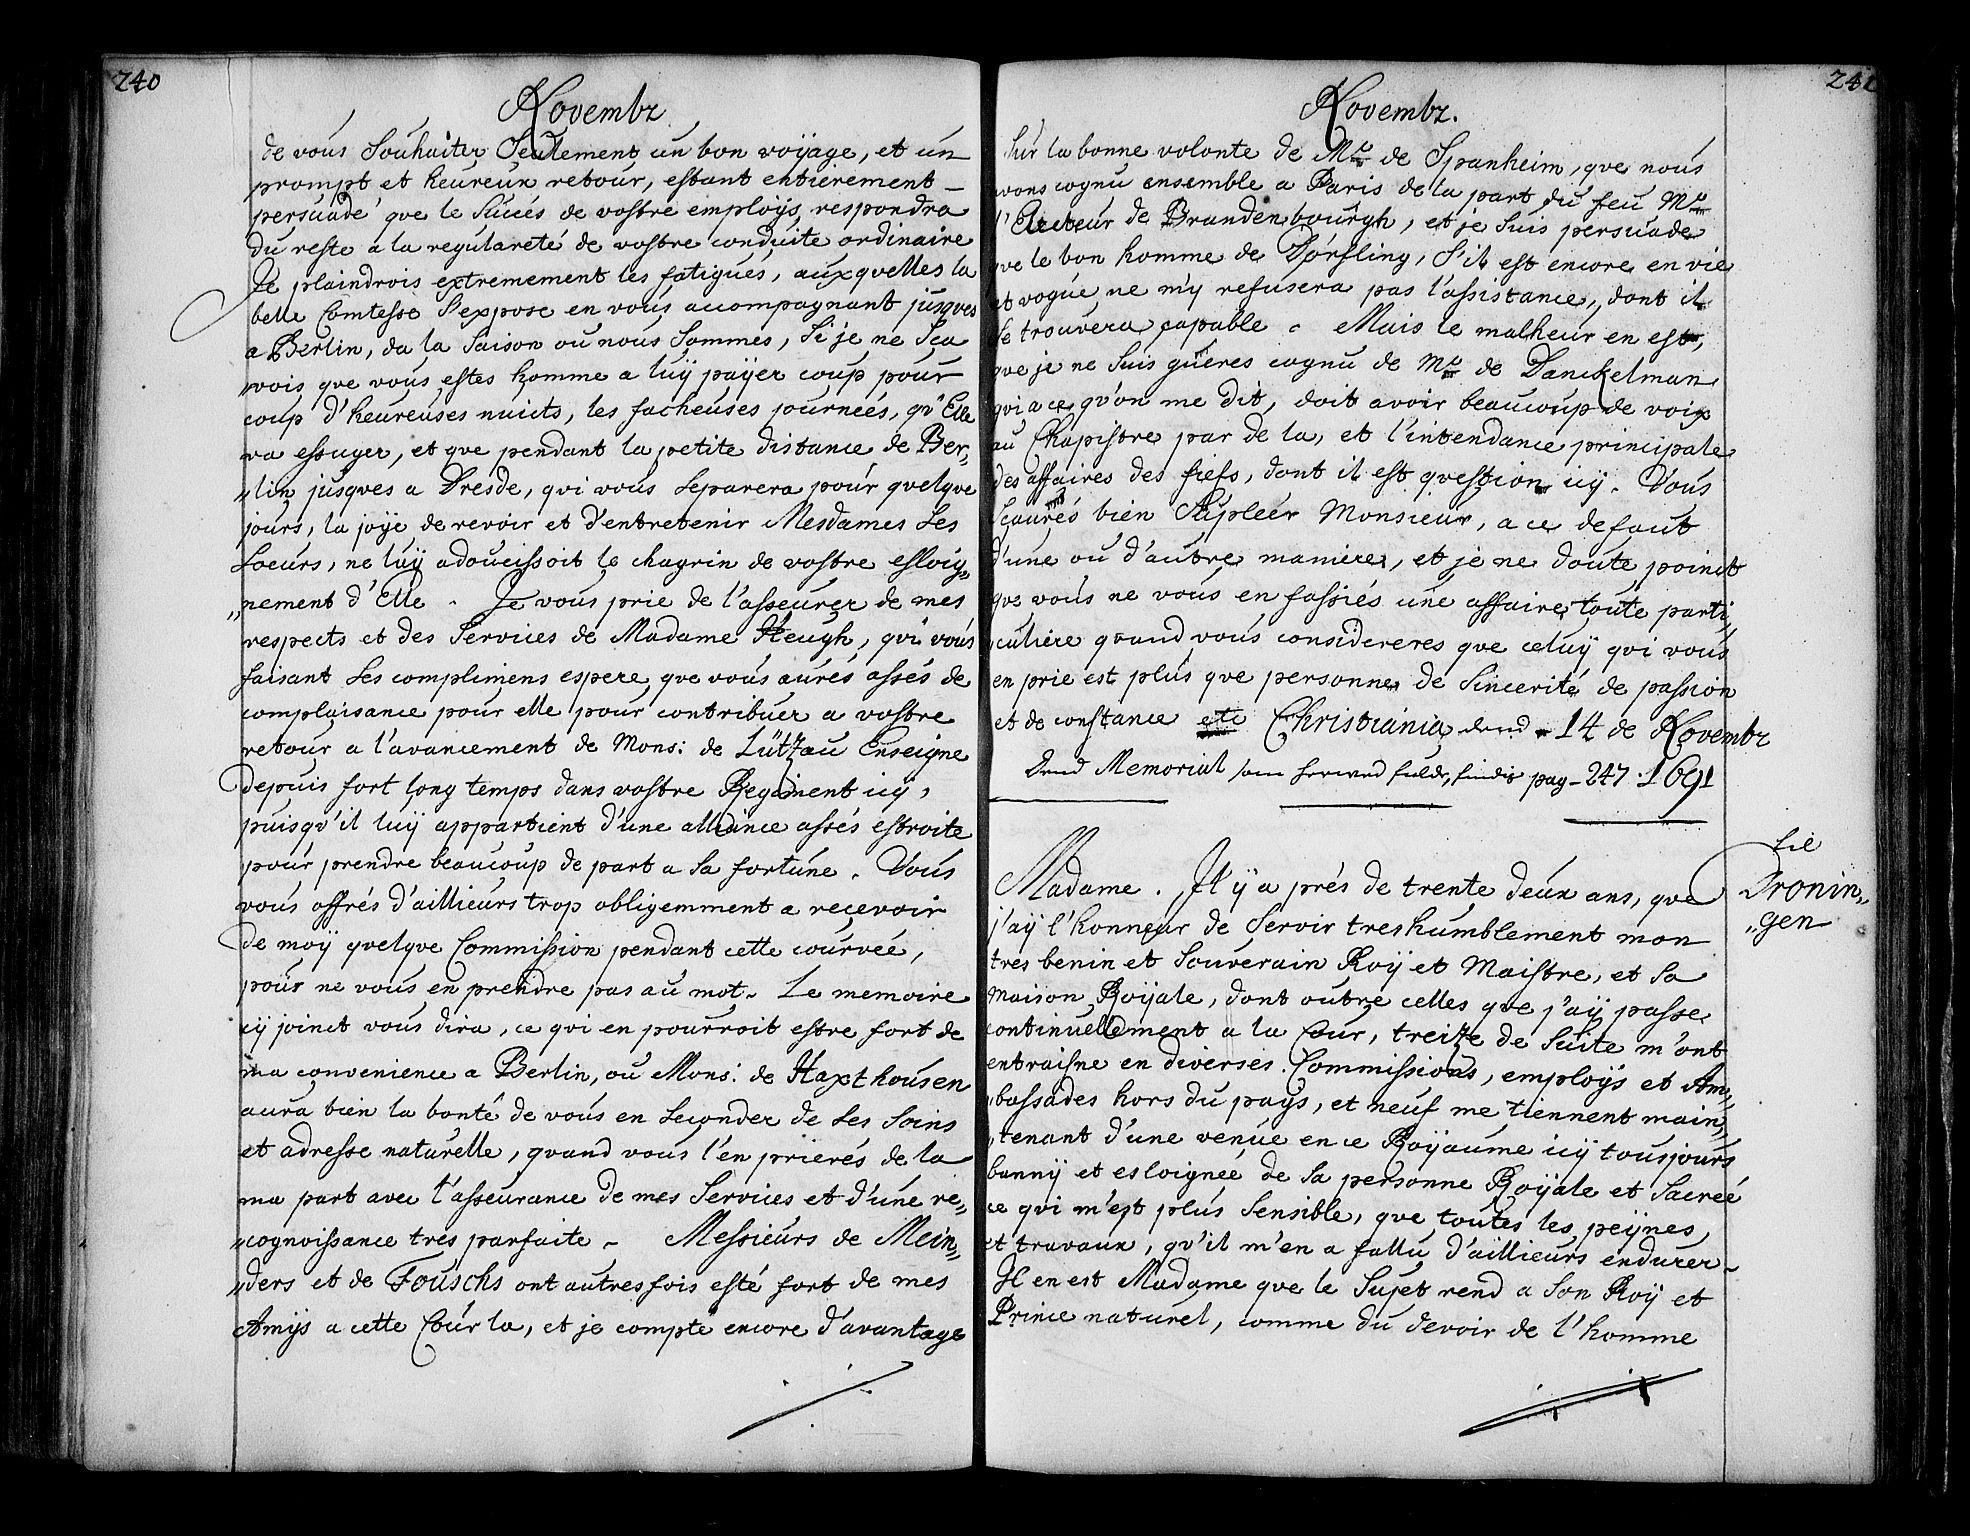 240
Novembr
de vous Souhaiter Seulement un bon voÿage, et un
prompt et heureux retour, estant entierement
persuadé que le Sucés de vostre employs respondra
du reste a la regulareté de vostre conduite ordinaire
Je plaindrois extremement les fatigues, auxquelles la
belle Comtesse S'expose en vous accompagnant jusques
a Berlin, da la Saison ou nous Sommes, Si je ne Sça
„vois que vous estes homme a luÿ paÿer coup pour
coup d'heureuses nuicts, les facheuses journeés, qu'Elle
va essuyer, et que pendant la petite distance de Ber„
„lin jusques a Dresde, qui vous Separera pour quelque
jours, la joÿe de revoir et d'entretenir Mesdames Ses
Soeurs, ne luÿ adoucissoit le chagrin de vostre esloig„
„nement d'Elle. Je vous prie de l'asseurer de mes
respects et des Services de Madame Heugh, qui vous
faisant Ses complimens espere que vous aurés assés de
complaisance pour elle pour contribuer a vostre
retour a l'avancement de Mons: de Lützau Enseigne
depuis fort long temps dans vostre Regiment icy,
puisqu'il luÿ appartient d'une alliance assés estroite
pour prendre beaucoup de part a Sa fortune. Vous
vous offrés d'aillieurs trop obligemment a reçevoir
de moÿ quelque Commission pendant cette courveé,
pour ne vous en prendre pas au mot. Le memoire
cÿ joinct vous dira, ce qui en pourroit estre fort de
ma convenience a Berlin, ou Mons: de Haxthousen
aura bien la bonté de vous en Seconder de Ses Soins
et adresse naturelle, quand vous l'en prierés de la
ma part avec l'asseurance de mes Services et d'une re„
„cognoissance tres parfaite. Messieurs de Mein„
„ders et de Fouschs ont autresfois esté fort de mes
Amÿs a cette Cour la, et je compte encore d'avantage
241
Novembr.
Sur la bonne volonte de Mr de Spanheim, que nous
avons cognu ensemble a Paris de la part du feu Mr
l'Electeur de Brandenbourgh, et je Suis persuade
que le bon homme de Dörfling, S'il est encore en vie
et vogue ne m'y refusera pas l'assistance, dont il
Se trouvera çapable. Mais le malheur en est,
que je ne Suis gueres cognu de Mr de Danckelman
qui a ce qu'on me dit, doit avoir beaucoup de voix
au Chapistre par de la, et l'intendance principale
des affaires des fiefs, dont il est question icÿ. Vous
Scaurés bien Supleér Monsieur, a ce defaut
d'une ou d'autre maniere, et je ne doute poinct
que vous ne vous en fassiés une affaire toute parti„
„culiere quand vous considereres que celuÿ qui vous
en prie est plus que personne de Sincerité de passion
et de constance etc Christiania dend 14 de Novembr
Dend Memorial som herved fulde, findis pag. 247. 1691
til
Dronin„
„gen
Madame. Il ÿ a prés de trente deux ans, que
j'aÿ l'honneur de Servir treshumblement mon
tres benin et Souverain Roÿ et Maistre, et Sa
Maison Roÿale, dont outre celles que j'aÿ passe
continuellement a la Cour, treize de Suite m'ont
entraisne en diverses Commissions, emploÿs et Am„
„bassades hors du pays, et neuf me tiennent main„
„tenant d'une venue en ce Roÿaume icÿ tousjours
bannÿ et esloigneé de Sa personne Roÿale et Sacreé
ce qui m'est plus Sensible, que toutes les peÿnes
et travaux, qu'il m'en a fallu d'aillieurs endurer.
Il en est Madame que le Sujet rend a Son Roÿ et
Prince naturel, comme du devoir de l'homme